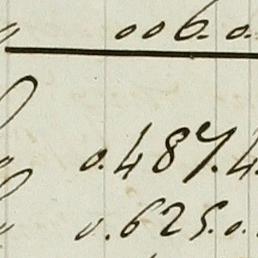 006.0.
0.487.4
0.625.0.